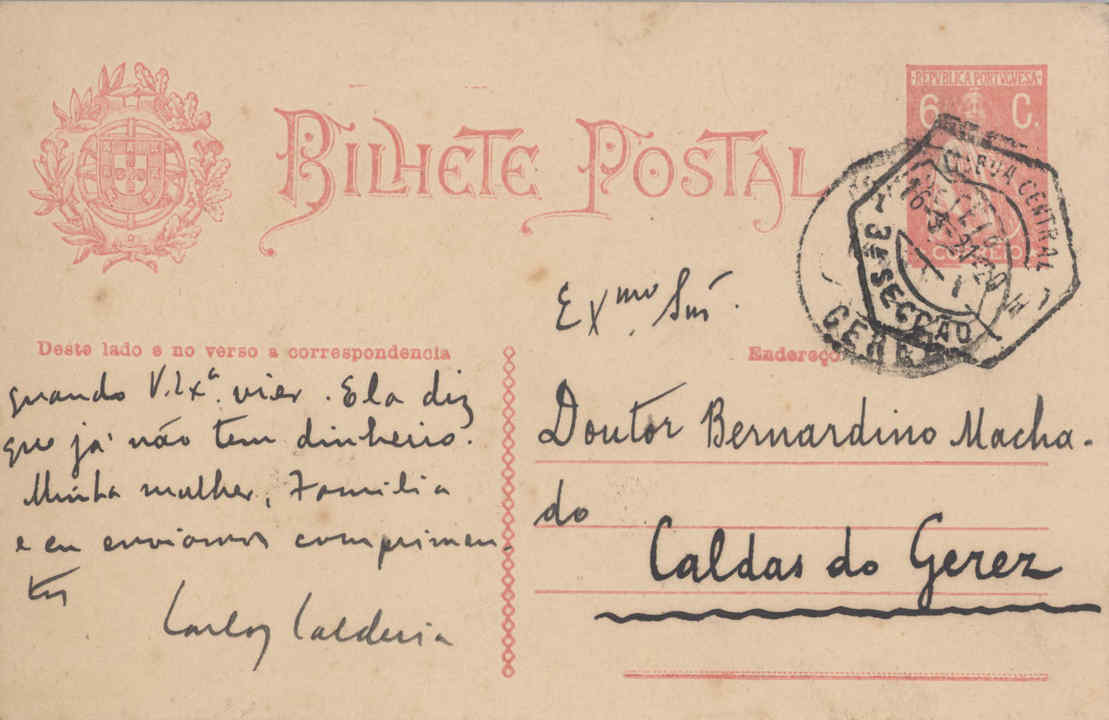 REPUBLICA PORTUGUESA
6 C.
BILHETE POSTAL
CENTRAL
3ª SECÇÃO
GEREZ
CORREIO
Exmo. Snr.
Deste lado e no verso a correspondencia
Endereço
quando V. Exª. vier. Ela diz
que já não tem dinheiro.
Minha mulher, Familia
e eu enviamos comprimen-
tos
Carlos Calderia
Doutor Bernardino Macha-
do
Caldas do Gerez